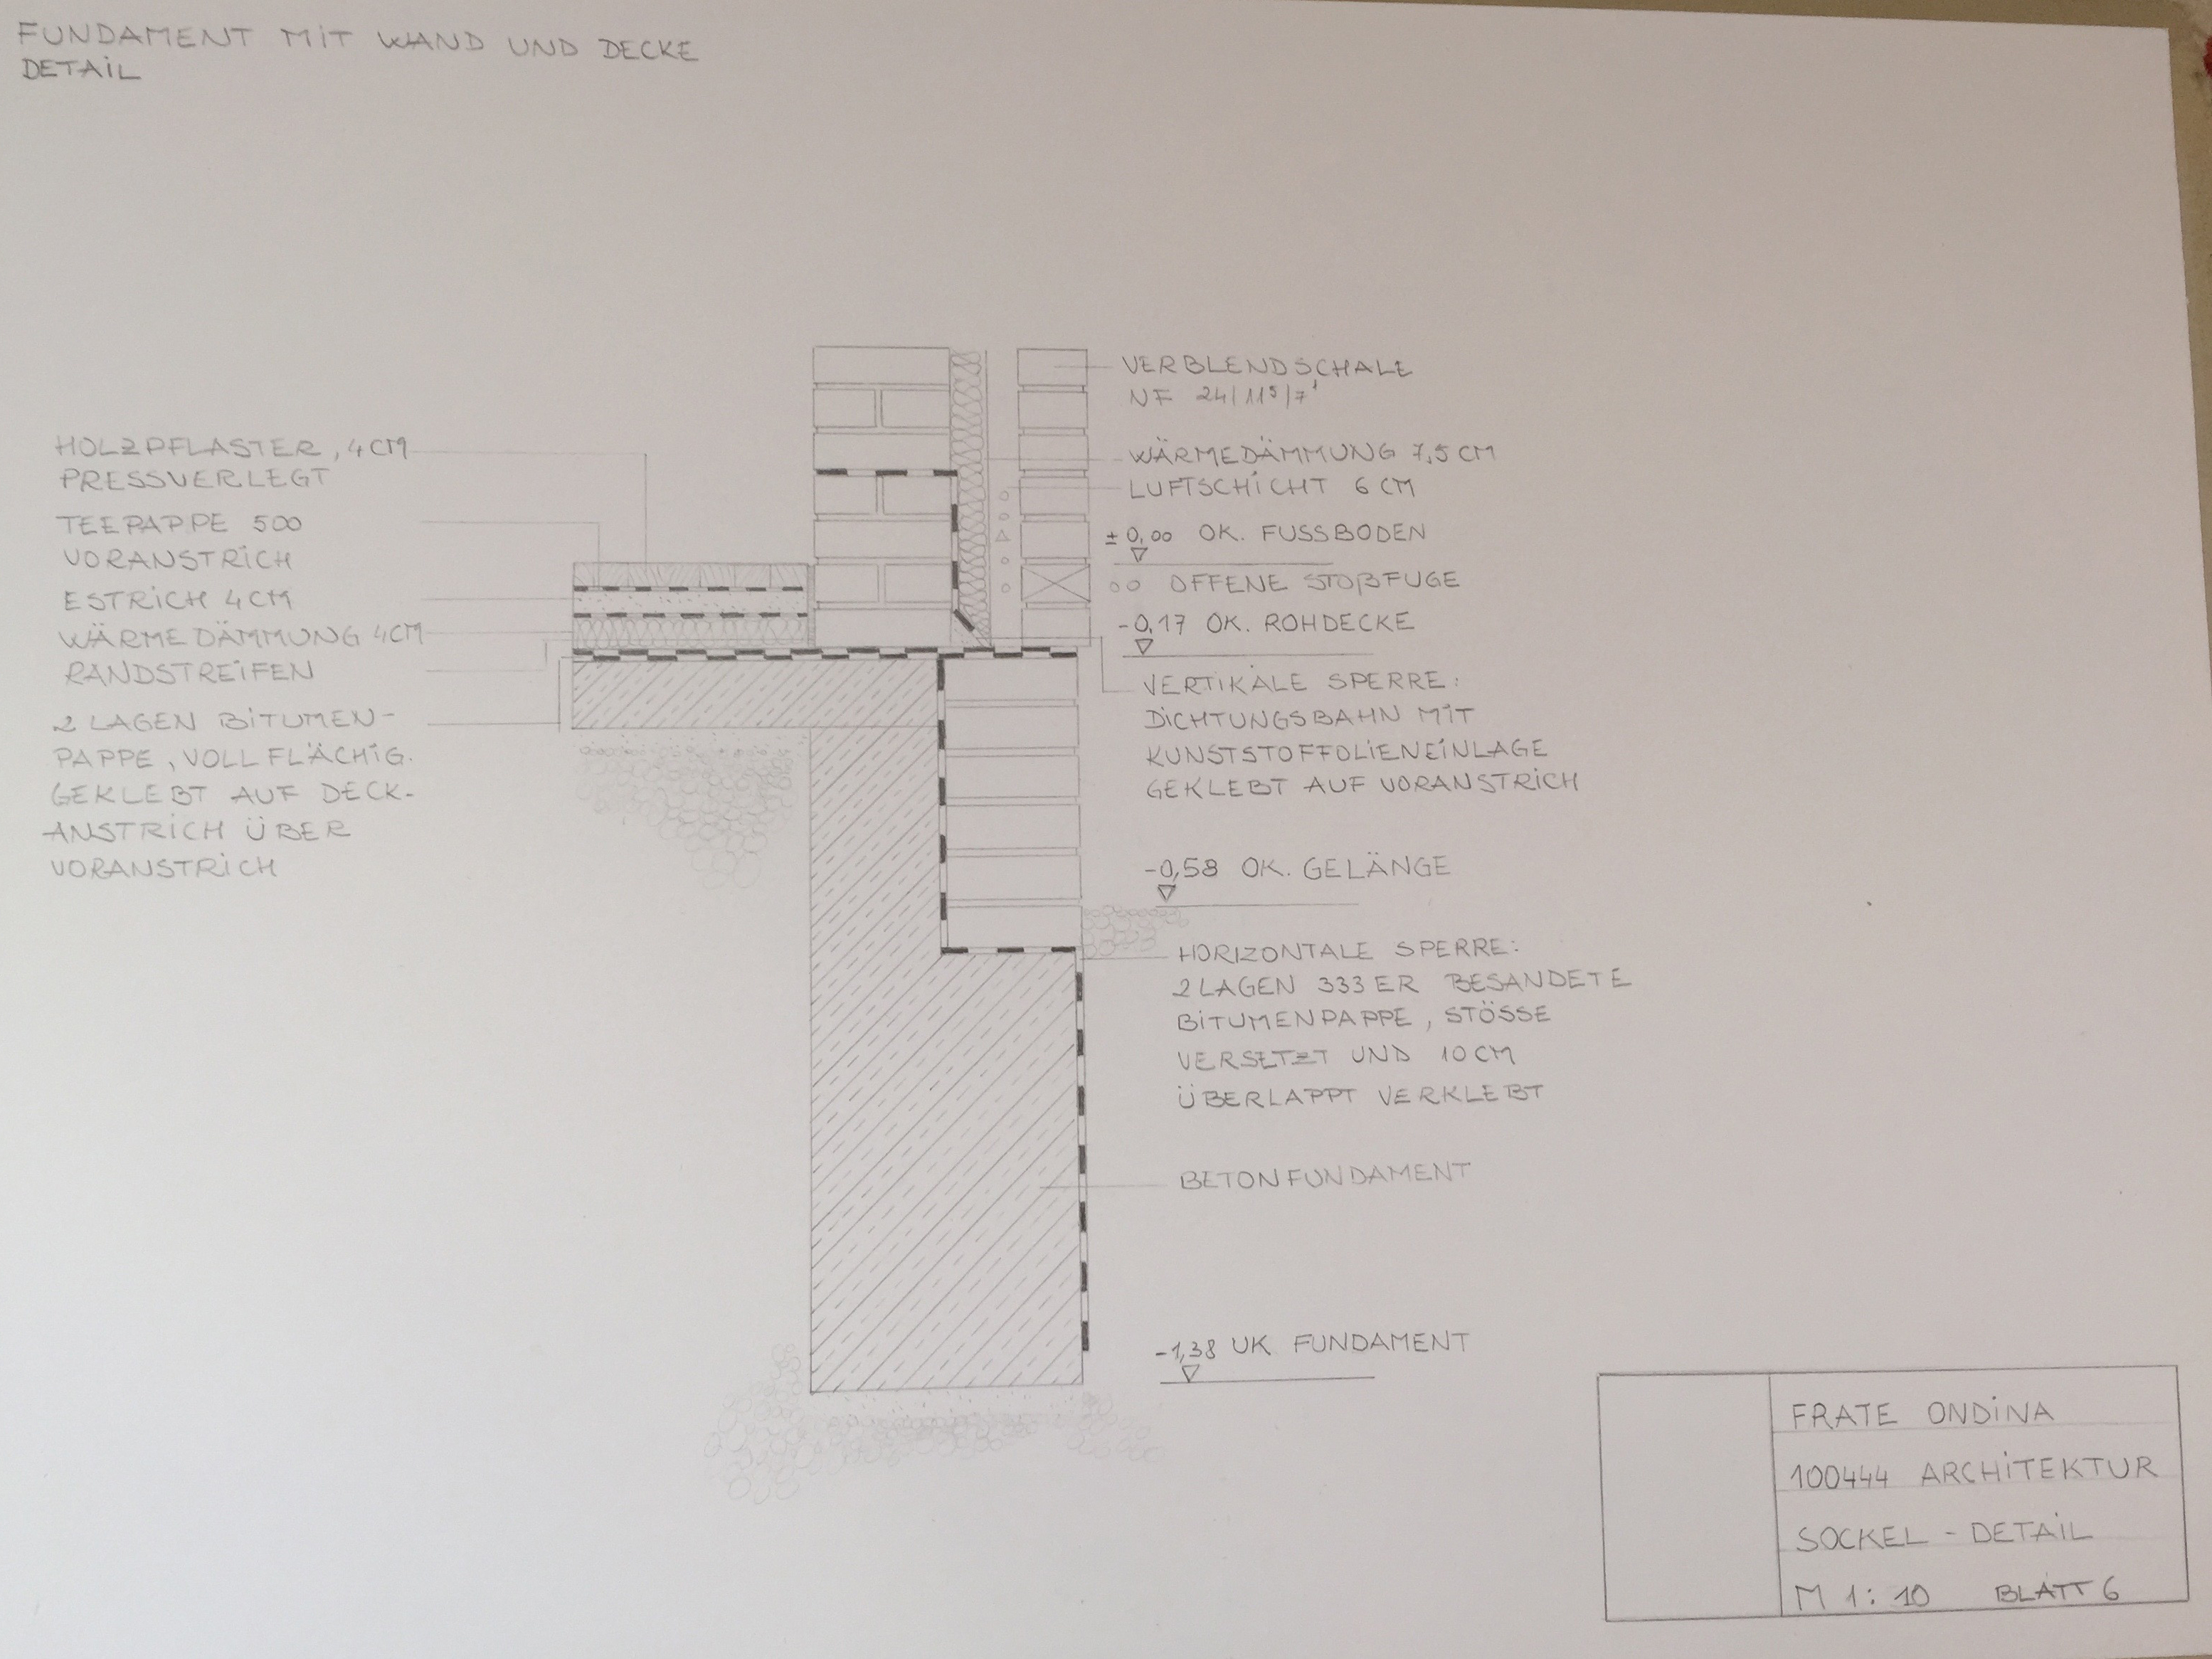 FUNDAMENT MIT WAND UND DECKE
DETAIL
HOLZPFLASTER, 4 CM
PRESSVERLEGT
TEEPAPPE 500
VORANSTRICH
ESTRICH 4 CM
WÄRMEDÄMMUNG 4CM
RANDSTREIFEN
2 LAGEN BITUMEN-
PAPPE, VOLLFLÄCHIG.
GEKLEBT AUF DECK-
ANSTRICH ÜBER
VORANSTRICH
VERBLENDSCHALE
NF 24/11⁵/7¹
WÄRMEDÄMMUNG 7,5 CM
LUFTSCHICHT 6 CM
± 0,00 OK. FUSSBODEN
OFFENE STOßFUGE
-0,17 OK. ROHDECKE
VERTIKALE SPERRE:
DICHTUNGSBAHN MIT
KUNSTSTOFFOLIENEINLAGE
GEKLEBT AUF VORANSTRICH
-0,58 OK. GELÄNGE
HORIZONTALE SPERRE:
2 LAGEN 333 ER BESANDETE
BITUMENPAPPE, STÖSSE
VERSETZT UND 10 CM
ÜBERLAPPT VERKLEBT
BETONFUNDAMENT
-1,38 UK FUNDAMENT
FRATE ONDINA
100444 ARCHITEKTUR
SOCKEL - DETAIL
M 1:10 BLATT 6